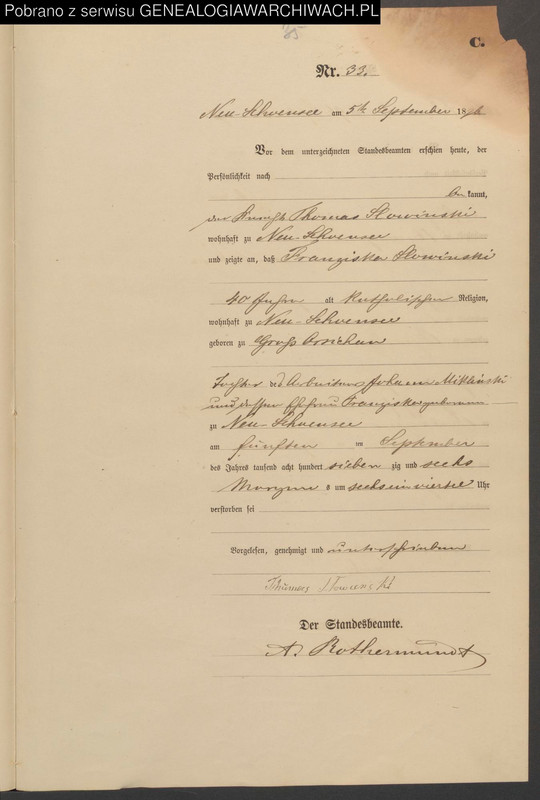 Pobrano z serwisu GENEALOGIAWARCHIWACH.PL
C.
Nr. 33.
Neu-Schoensee am 5ten September 1876
Vor dem unterzeichneten Standesbeamten erschien heute, der
Persönlichkeit nach
bekannt,
der Knecht Thomas Slowinski
wohnhaft zu Neu-Schoensee
und zeigte an, daß Franziska Slowinski
40 Jahre alt katholischer Religion,
wohnhaft zu Neu-Schoensee
geboren zu Groß Orsichau
Tochter des Arbeiters Johann Miklinski
und dessen Ehefrau Franziska geborenen
zu Neu-Schoensee
am fünften September
des Jahres tausend acht hundert sieben zig und sechs
Morgens um sechs ein viertel Uhr
verstorben sei
Vorgelesen, genehmigt und unterschrieben
Der Standesbeamte.
A. Rothermundt